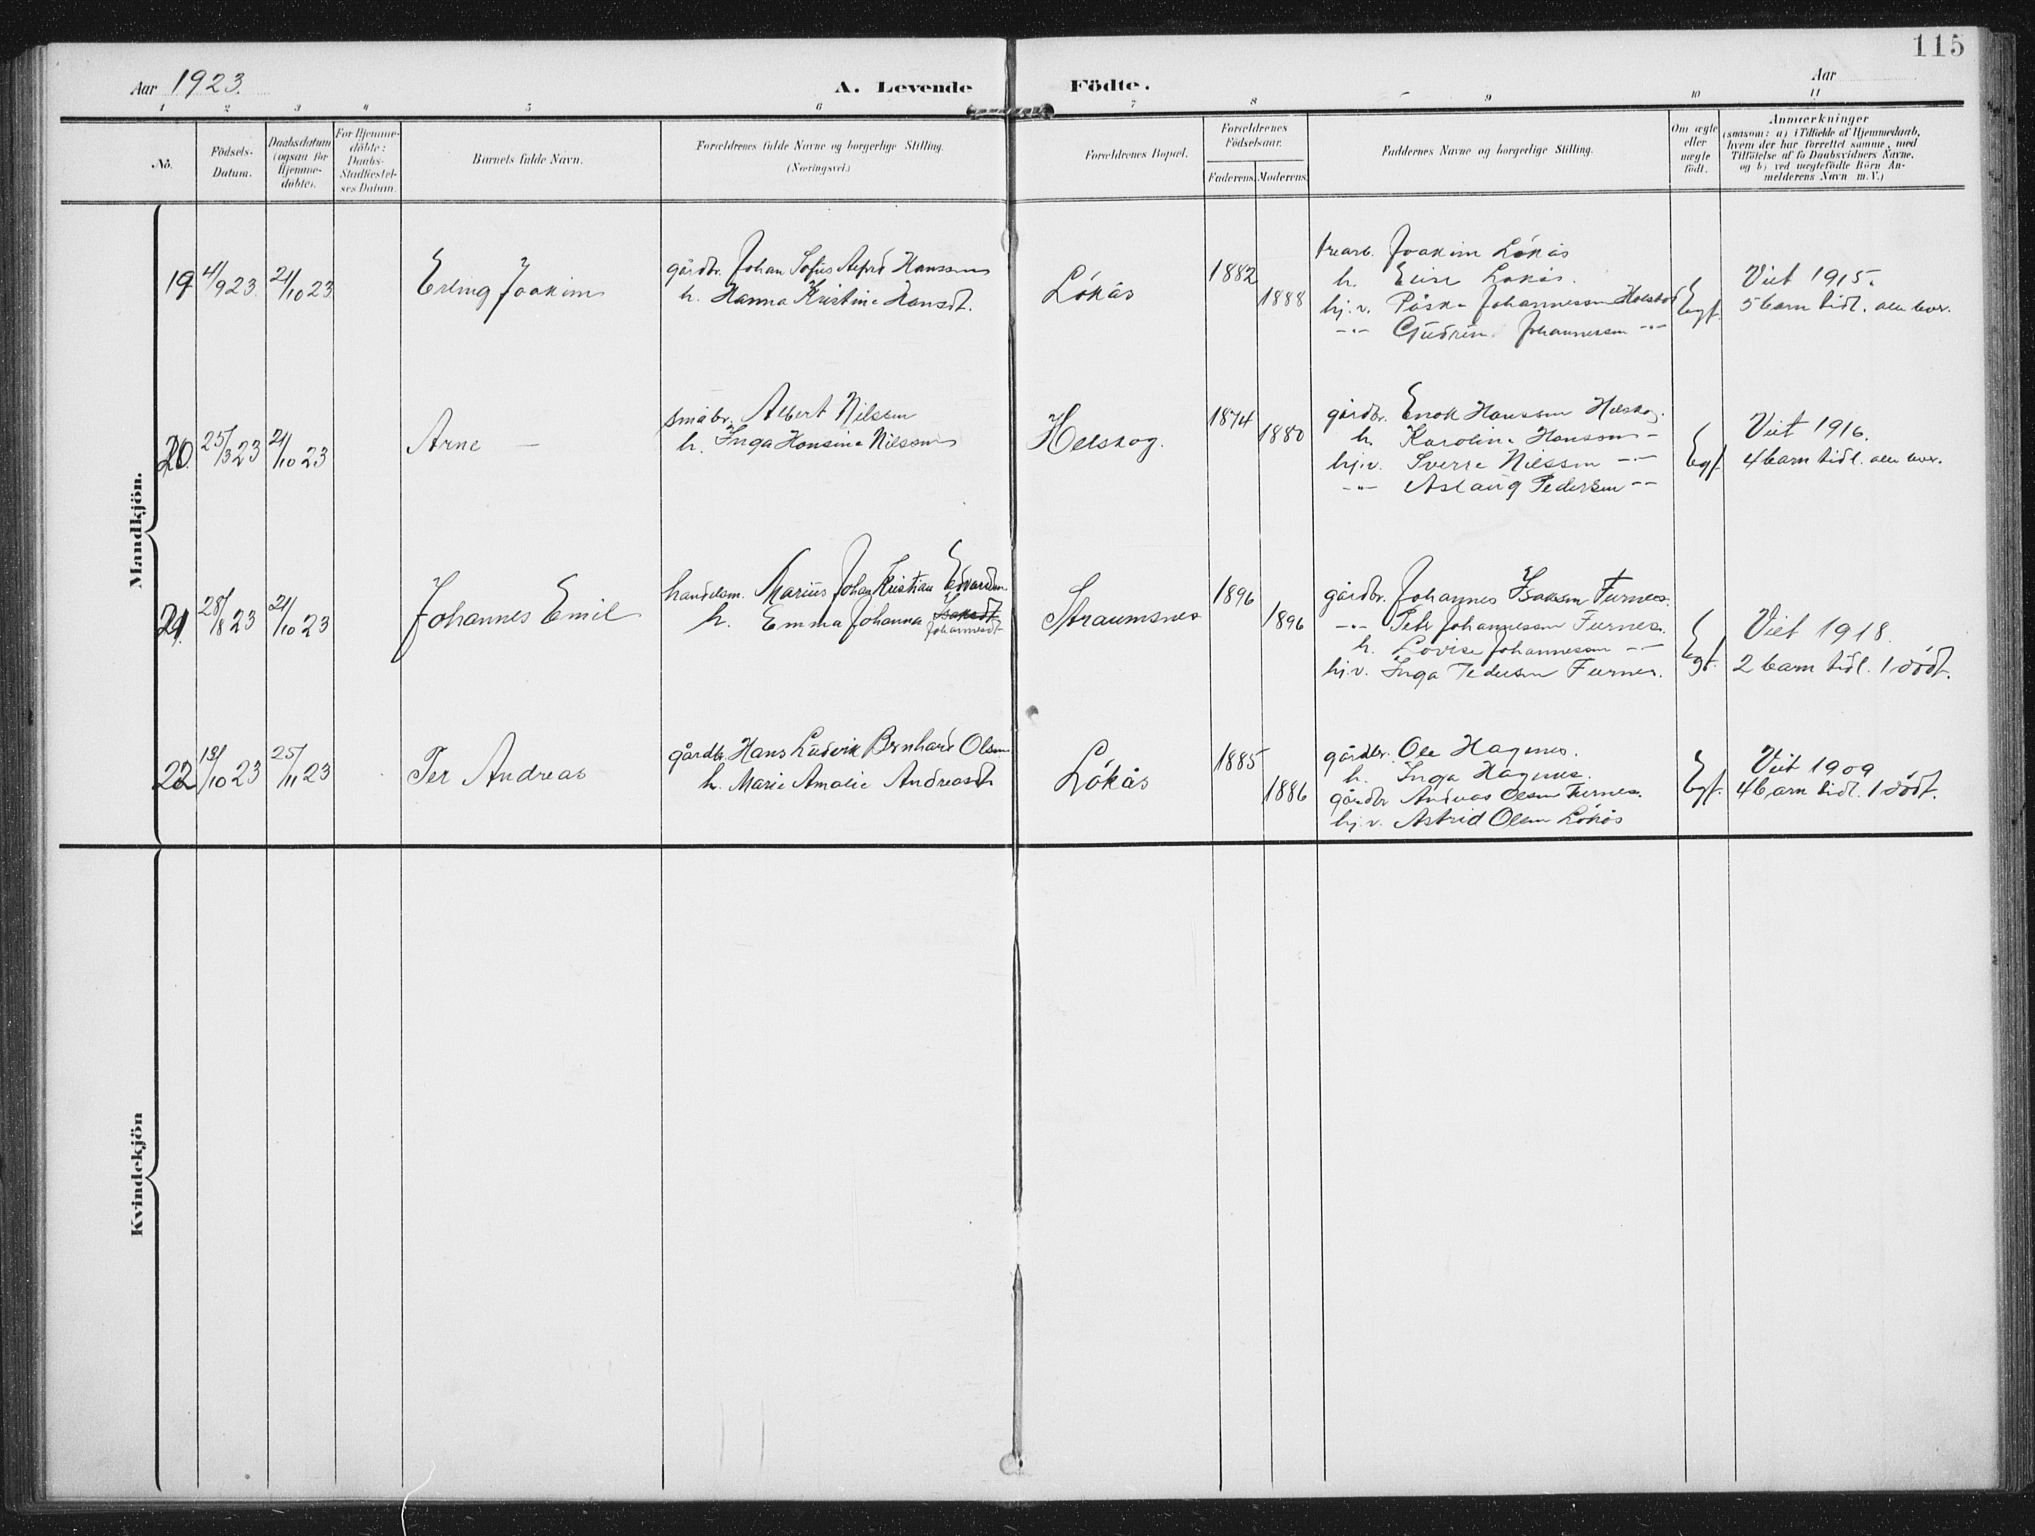 115
Aar 1923. A. Levende Födte. Aar
1 2 3 4 5 6 7 8 9 10 11
No. Födsels-Datum. Daabsdatum (ogsaa for Hjemmedöbte). For Hjemmedöbte: Daabs-Stadfæstelses Datum. Barnets fulde Navn. Forældrenes fulde Navne og borgerlige Stilling. (Næringsvei.) Forældrenes Bopæl. Forældrenes Födselsaar. Faderens. Moderens. Faddernes Navne og borgerlige Stilling. Om ægte eller uægte födt. Anmærkninger (saasom: a) i Tilfælde af Hjemmedaab, hvem der har forrettet samme, med Tilföielse af to Daabsvidners Navne. og b) ved uægtefödte Börn Anmelderens Navn m. V.)
Mandkjön.
19 4/9 23. 21/10 23 Erling Joakim
gårdbr. Johan Sofus Alfred Hanssen
h. Hanna Kristine Hansdt.
Lökås 1882 1888
trearb. Joakim Lökås
h. Elise Lökås.
hj.v. Johannessen
-"- Gudrun Johannessen -"-
Egt.
Viet 1915.
5 barn tidl. alle lever.
20. 25/3 23 21/10 23 Arne —
småbr. Albert Nilssen
h. Inga Hansine Nilssen
Helskog. 1874 1880
gårdbr. Enok Hanssen Helskog.
h. Karoline Hanssen -
hj.v. Sverre Nilssen -"-
-"- Aslaug Pedersen -"-
Egt.
Viet 1916.
4 barn tidl. alle lever.
21. 28/8 23 21/10 23 Johannes Emil
handelsm. Marius Johan Kristian Edvardsen
h. Emma Johanna Isaksdt
Johannesdt
Straumsnes 1896 1896
gårdbr. Johannes Isaksen Furnes.
-"- Petr Johannessen Furnes.
h. Lovise Johannessen -"-
hj.v. Inga Pedersen Furnes.
Egt.
Viet 1918.
2 barn tidl. 1 dödt.
22 13/10 23 25/11 23 Per Andreas
gårdbr. Hans Ludvik Bernhard Olsen
h. Marie Amalie Andreasdt
Lökås 1885 1886
gårdbr. Ole Hagenes.
h. Inga Hagenes.
gårdbr Andreas Olsen Furnes.
hj.v. Astrid Olsen Lökås
Egt.
Viet 1909
4 barn tidl. 1 dödt.
Kvindekjön